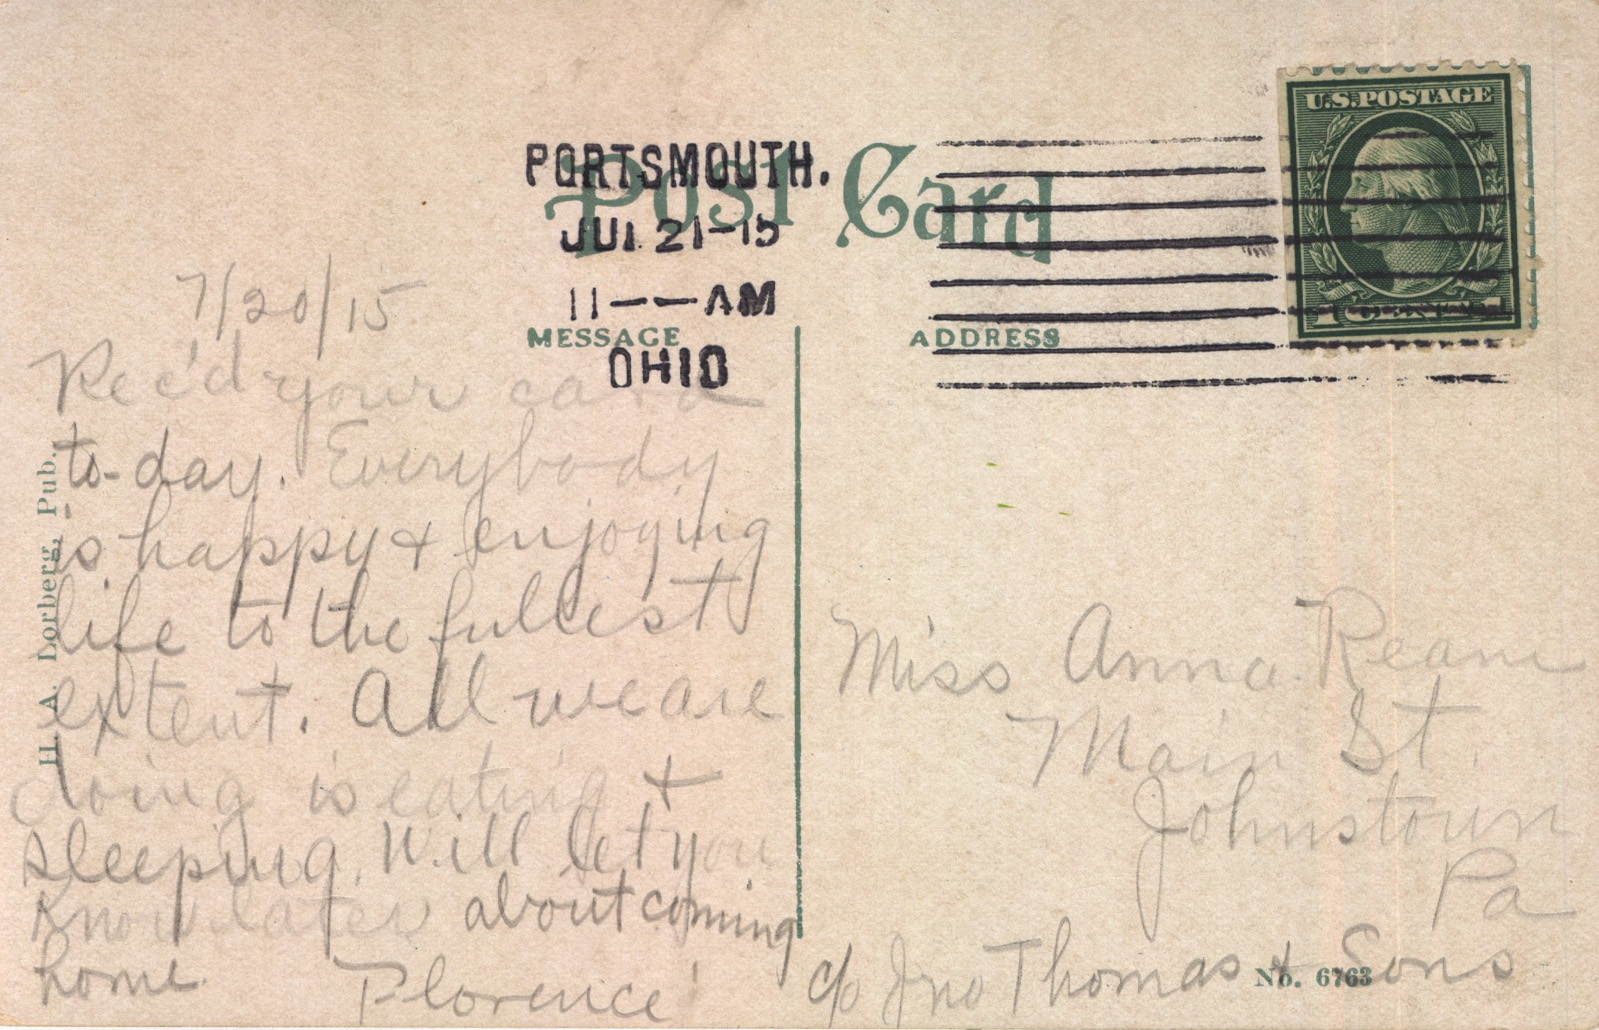 Post Card
PORTSMOUTH.
JUL 21-15
11--AM
OHIO
U.S.POSTAGE
MESSAGE
ADDRESS
7/20/15
Rec'd your card
to-day. Everybody
is happy & enjoying
life to the fullest
extent. All we are
doing is eating &
sleeping. Will let you
know later about coming
home.
Florence
H. A. Lorberg, Pub.
Miss Anna Ream
Main St.
Johnstown
Pa
c/o Jno Thomas & Sons
No. 6763